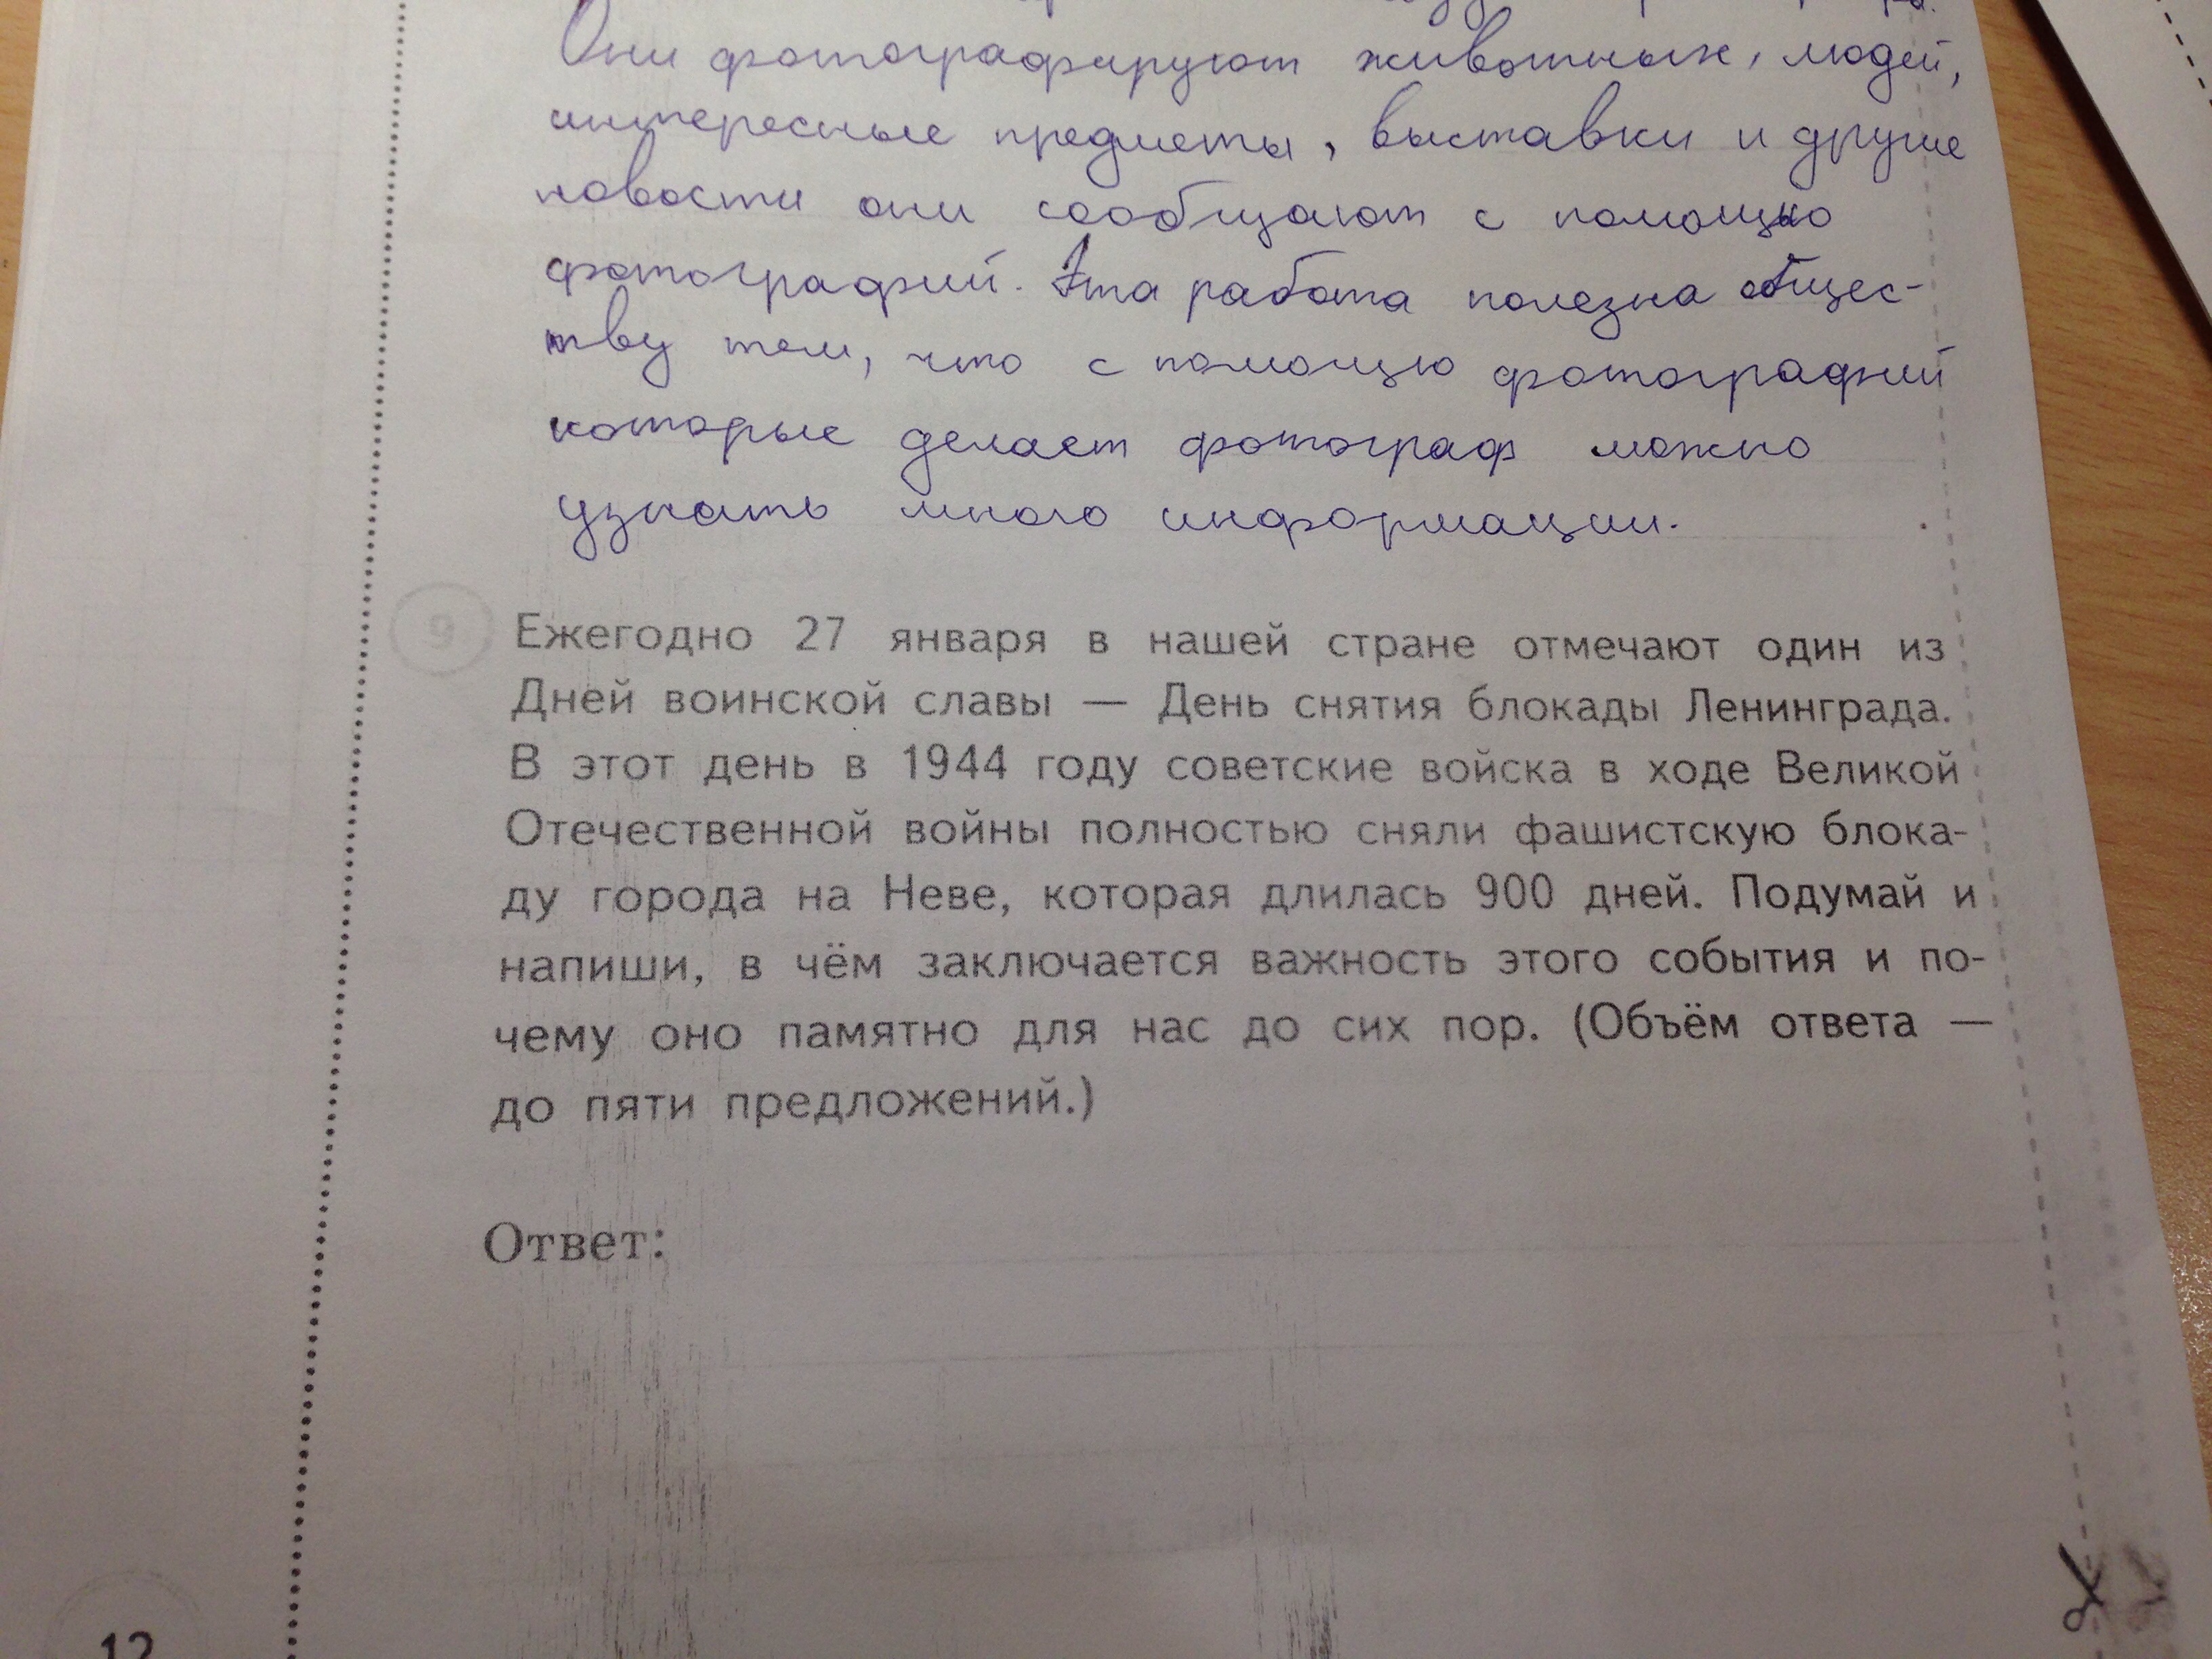 Они фотографируют животных, людей,
интересные предметы, выставки и другие
новости они сообщают с помощью
фотографий. Эта работа полезна общес-
тву тем, что с помощью фотографий
которые делает фотограф можно
узнать много информации.
9 Ежегодно 27 января в нашей стране отмечают один из
Дней воинской славы — День снятия блокады Ленинграда.
В этот день в 1944 году советские войска в ходе Великой
Отечественной войны полностью сняли фашистскую блока-
ду города на Неве, которая длилась 900 дней. Подумай и
напиши, в чём заключается важность этого события и по-
чему оно памятно для нас до сих пор. (Объём ответа —
до пяти предложений.)
Ответ:
12